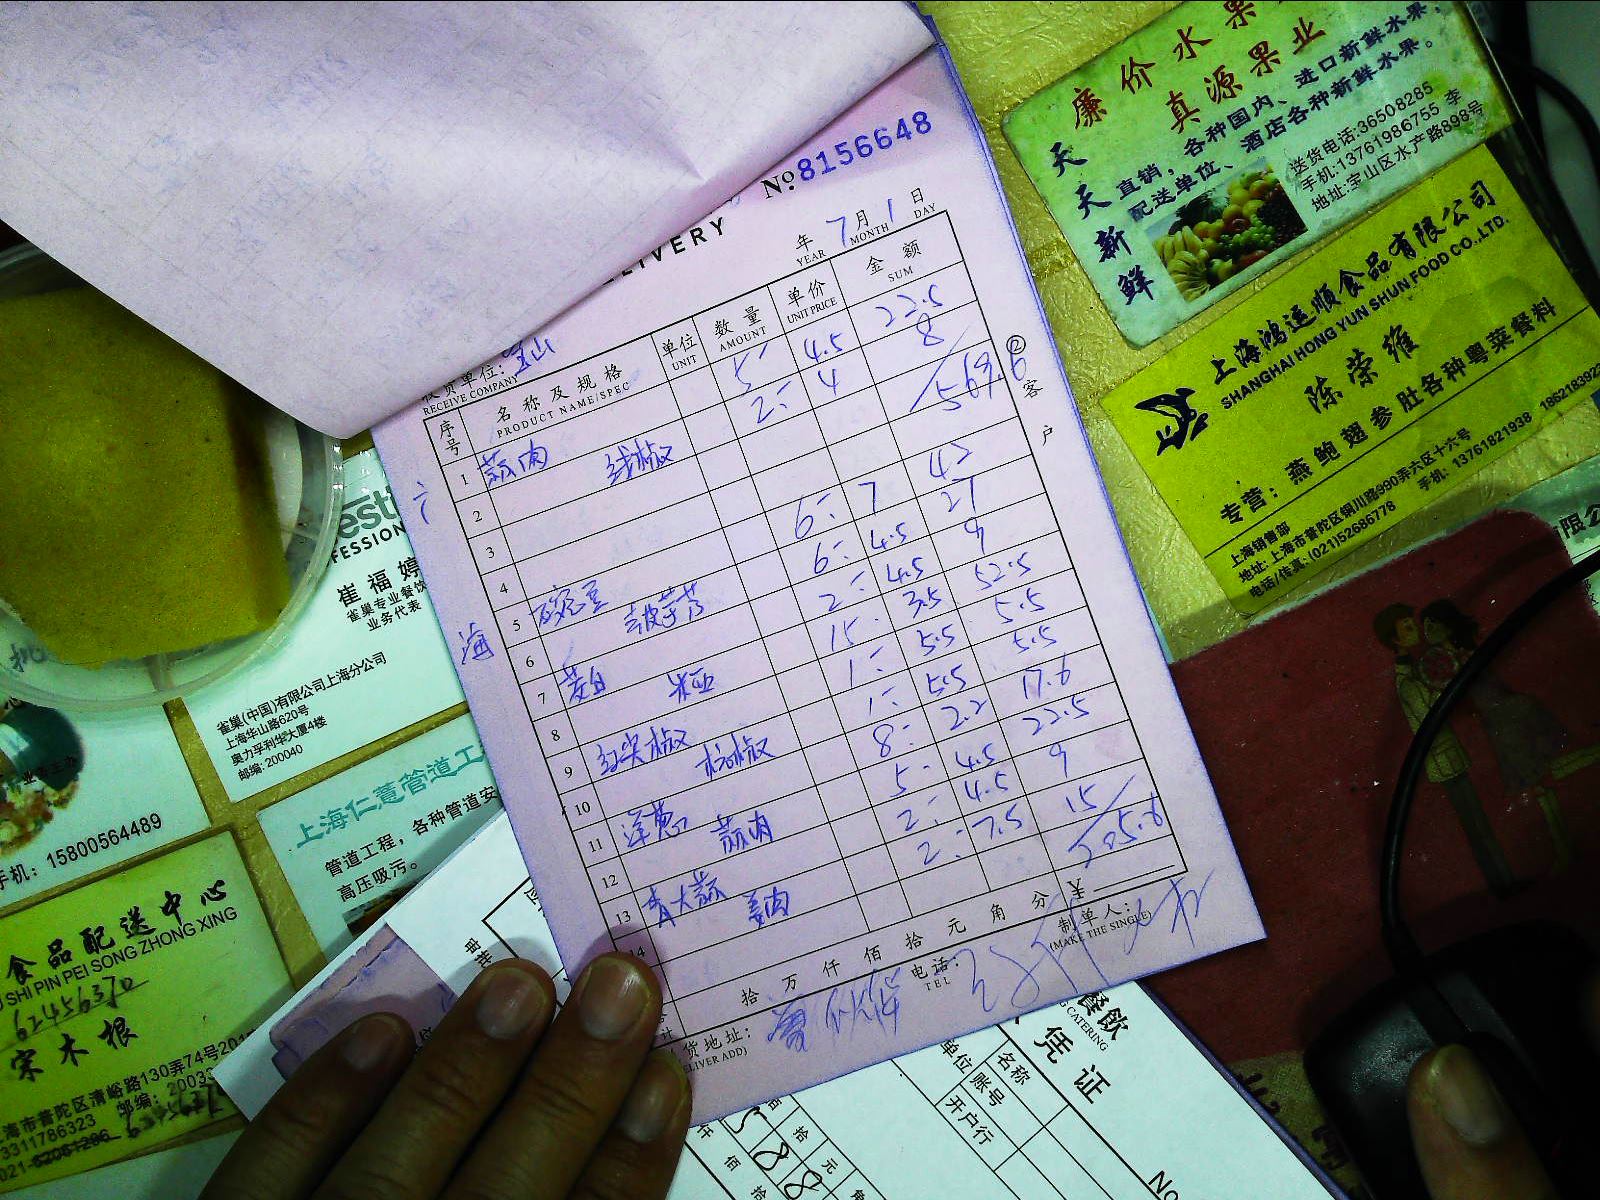 № 8156648
LIVERY
年 7月 1日
YEAR MONTH DAY
收货单位: 宝山
RECEIVE COMPANY
序号 名称及规格 单位 数量 单价 金额
PRODUCT NAME/SPEC UNIT AMOUNT UNIT PRICE SUM
1 蒜肉 线椒 5 4.5 22.5
2 2 4 8
3 569.6
4
5 豌豆 6 7 42
6 6 4.5 27
7 黄白 2 4.5 9
8 15 3.5 52.5
9 红尖椒 杭椒 1 5.5 5.5
10 1 5.5 5.5
11 洋葱 蒜肉 8 2.2 17.6
12 5 4.5 22.5
13 青大蒜 姜肉 2 4.5 9
14 2 7.5 15
205.6
海
②客户
拾万仟佰拾元角分
制单人:
(MAKE THE SINGLE)
电话:
TEL
货地址:
ELIVER ADD)
廉价水果
真源果业
天天新鲜
直销,各种国内、进口新鲜水果,
配送单位、酒店各种新鲜水果。
送货电话:36508285
手机:13761986755 李
地址:宝山区水产路898号
上海鸿运顺食品有限公司
SHANGHAI HONG YUN SHUN FOOD CO.,LTD.
陈荣维
专营:燕鲍翅参肚各种粤菜餐料
上海销售部
地址:上海市普陀区铜川路990弄六区十六号
电话/传真:(021)52686778 手机:13761821938 1862183923
有限公
est
FESSION
崔福婷
雀巢专业餐饮
业务代表
雀巢(中国)有限公司上海分公司
上海华山路620号
奥力孚利华大厦4楼
邮编:200040
手机:15800564489
上海仁薏管道工
管道工程,各种管道安
高压吸污。
食品配送中心
SHI PIN PEI SONG ZHONG XING
62456370
宋木根
海市普陀区清峪路130弄74号201
13311786323 邮编:20033
021-62081286
餐飲
CATERING
凭证
单位 名称
账号
开户行
№
拾元
仟佰拾
588